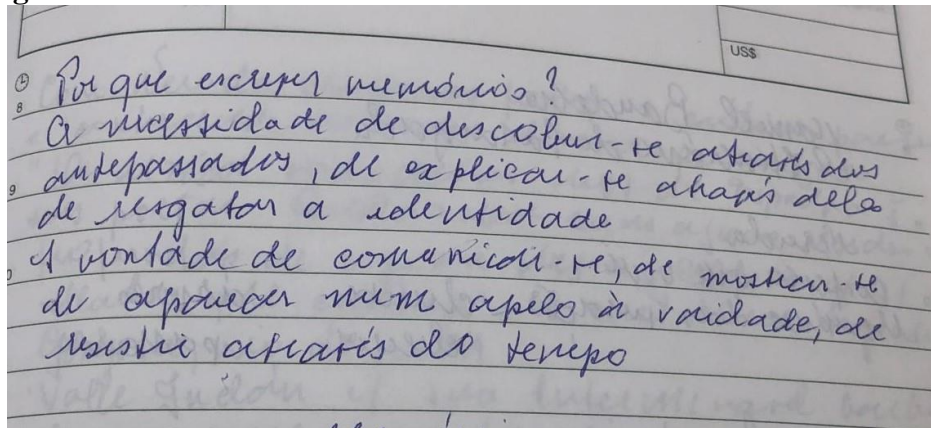 US$
Por que escrever memórias?
A necessidade de descobrir-se através dos
antepassados, de explicar-se através deles
de resgatar a identidade
A vontade de comunicar-se, de mostrar-se
de aparecer num apelo à vaidade, de
resistir através do tempo